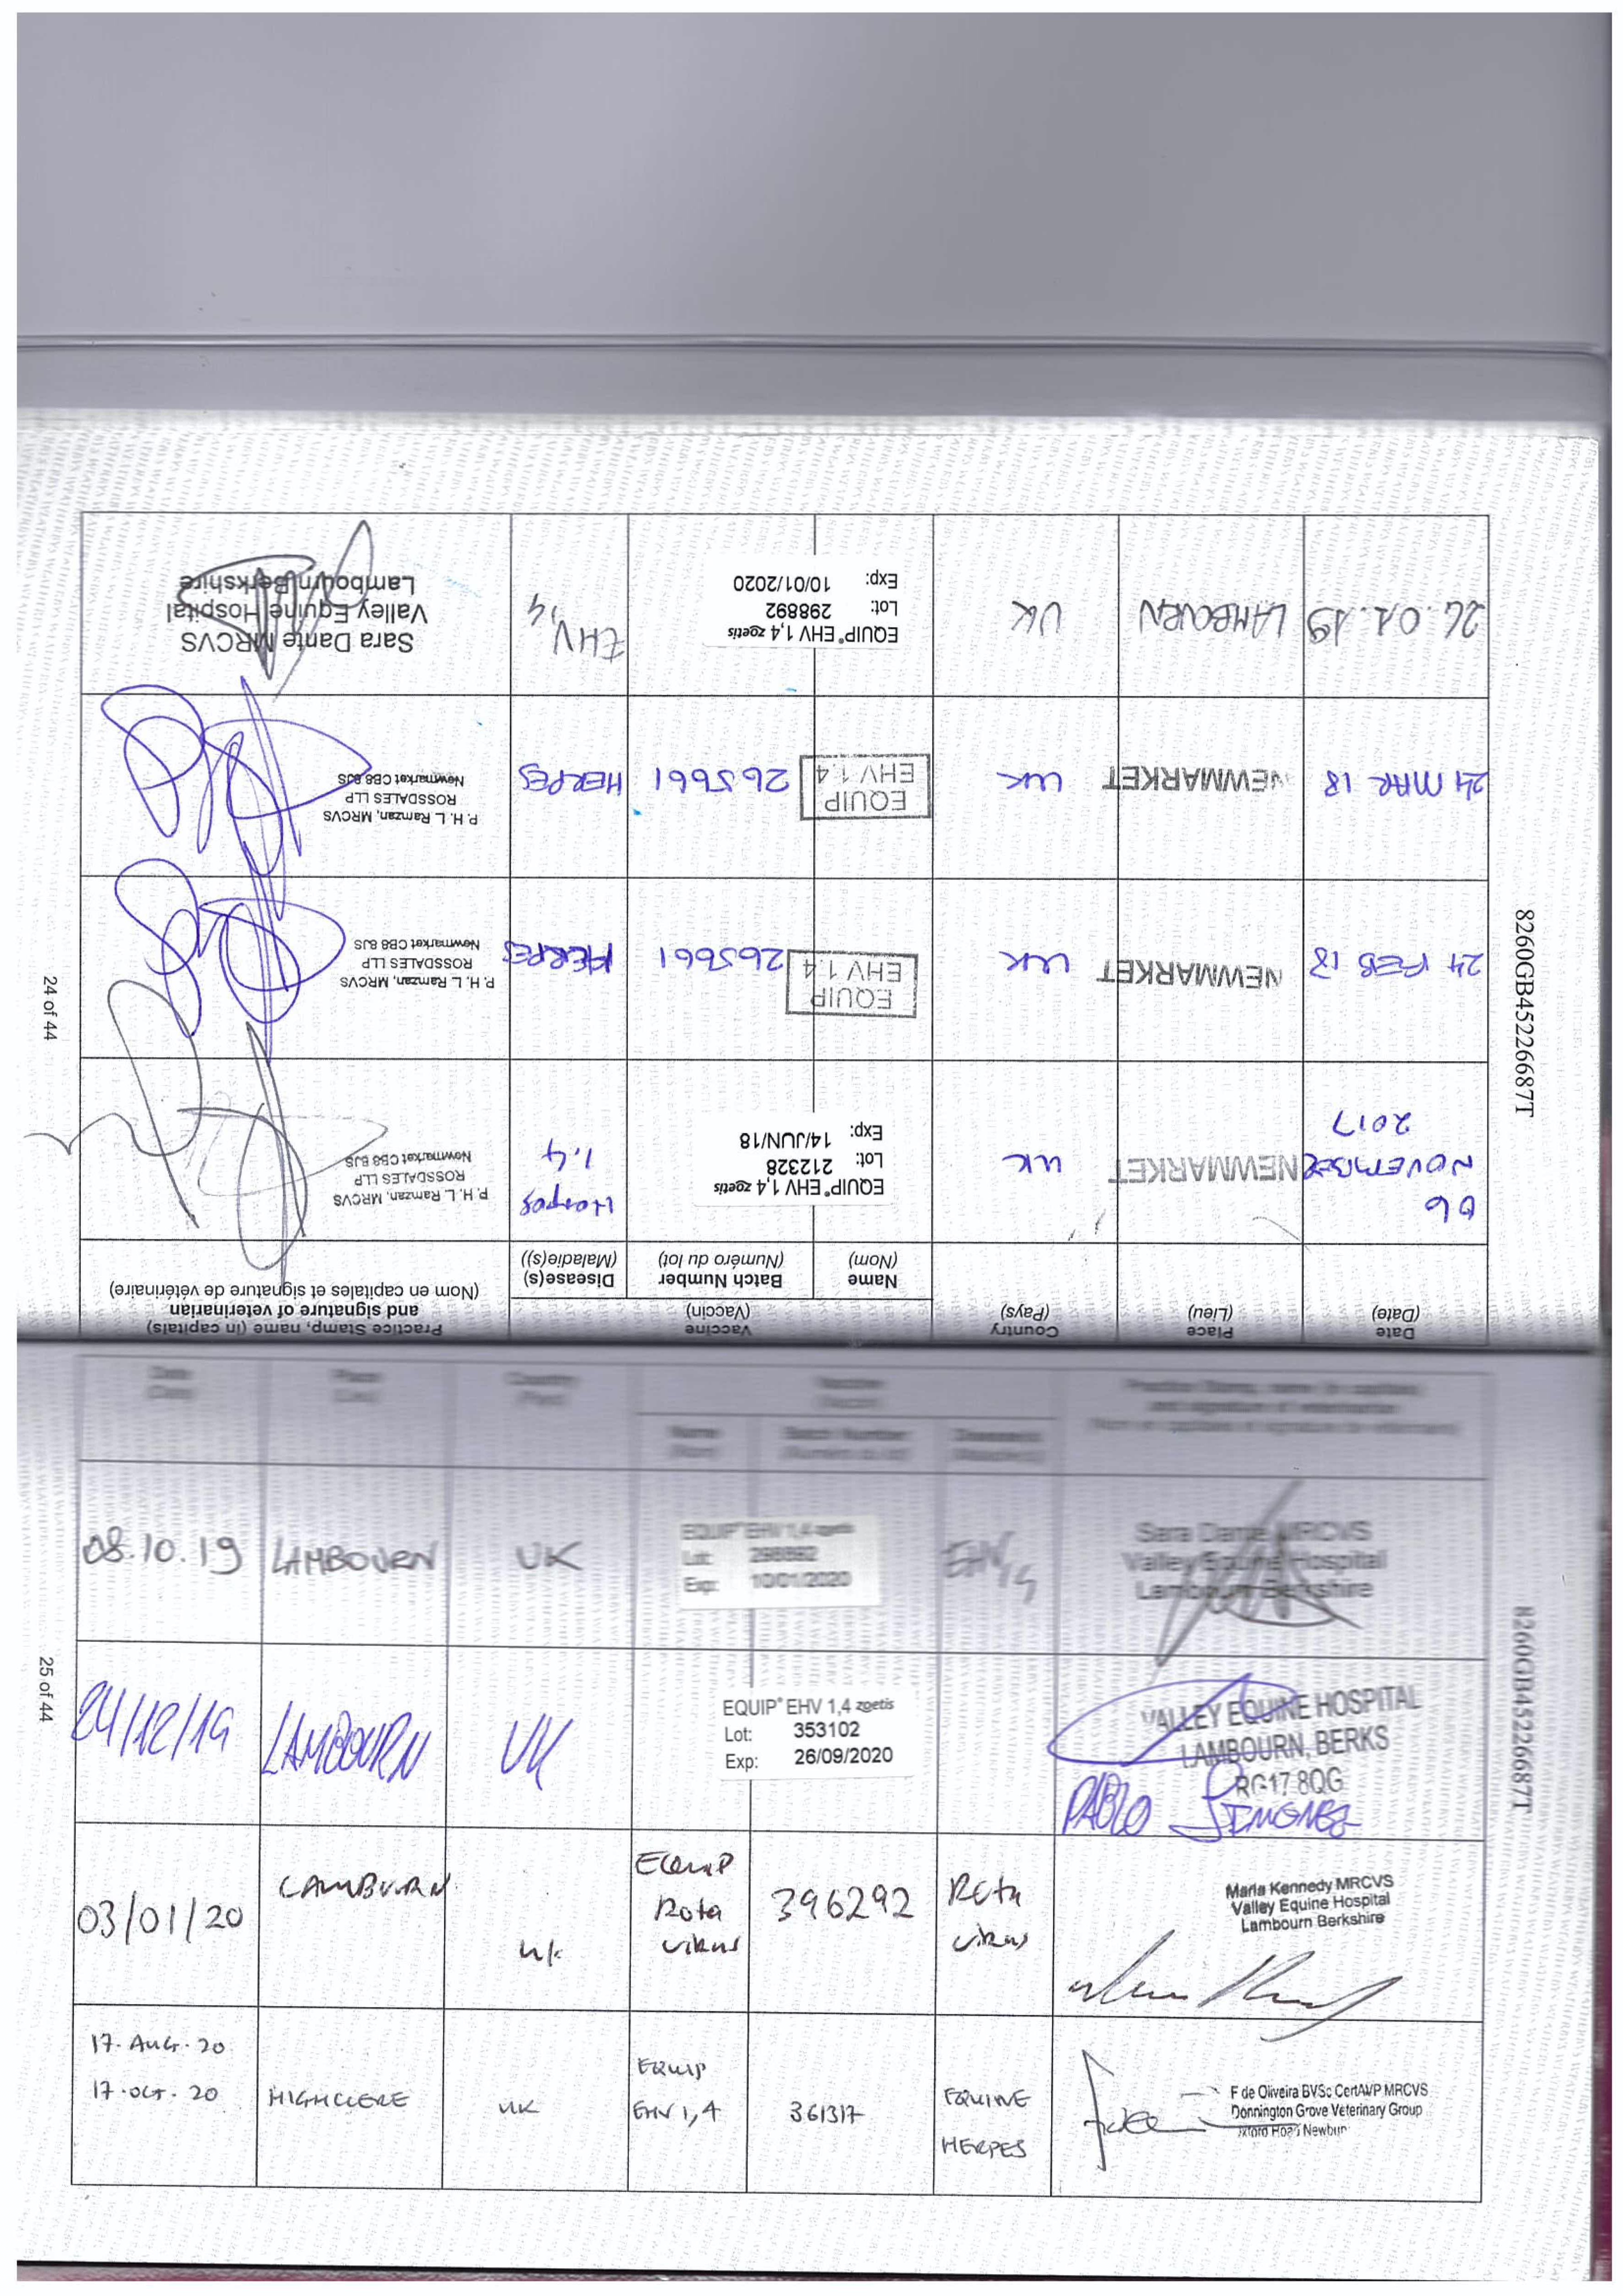 8260GB45226687T
Date
(Date)
Place
(Lieu)
Country
(Pays)
Vaccine
(Vaccin)
Name
(Nom)
Batch Number
(Numéro du lot)
Disease(s)
(Maladie(s))
Practice Stamp, name (in capitals)
and signature of veterinarian
(Nom en capitales et signature de vétérinaire)
06
NOVEMBER
2017
NEWMARKET
UK
EQUIP® EHV 1,4 zoetis
Lot: 212328
Exp: 14/JUN/18
Herpes
1.4
P. H. L. Ramzan, MRCVS
ROSSDALES LLP
Newmarket CB8 8JS
24 FEB 18
NEWMARKET
UK
EQUIP
EHV 1.4
265661
HERPES
P. H. L. Ramzan, MRCVS
ROSSDALES LLP
Newmarket CB8 8JS
24 MAR 18
NEWMARKET
UK
EQUIP
EHV 1.4
265661
HERPES
P. H. L. Ramzan, MRCVS
ROSSDALES LLP
Newmarket CB8 8JS
LAMBOURN
UK
EQUIP® EHV 1,4 zoetis
Lot: 298892
Exp: 10/01/2020
EHV
1,4
Sara Dante MRCVS
Valley Equine Hospital
Lambourn Berkshire
24 of 44
Date
(Date)
Place
(Lieu)
Country
(Pays)
Vaccine
(Vaccin)
Name
(Nom)
Batch Number
(Numéro du lot)
Disease(s)
(Maladie(s))
Practice Stamp, name (in capitals)
and signature of veterinarian
(Nom en capitales et signature de vétérinaire)
08.10.19
LAMBOURN
UK
EQUIP® EHV 1,4 zoetis
Lot: 298892
Exp: 10/01/2020
EHV
1,4
Sara Dante MRCVS
Valley Equine Hospital
Lambourn Berkshire
24/12/19
LAMBOURN
UK
EQUIP® EHV 1,4 zoetis
Lot: 353102
Exp: 26/09/2020
VALLEY EQUINE HOSPITAL
LAMBOURN, BERKS
RG17 8QG
PABLO JIMENEZ
03/01/20
LAMBOURN
UK
EQUIP
Rota
virus
396292
Rota
virus
Maria Kennedy MRCVS
Valley Equine Hospital
Lambourn Berkshire
17. AUG. 20
17. OCT. 20
HIGHCLERE
UK
EQUIP
EHV 1,4
361317
EQUINE
HERPES
F de Oliveira BVSc CertAVP MRCVS
Donnington Grove Veterinary Group
Oxford Road Newbury
25 of 44
8260GB45226687T